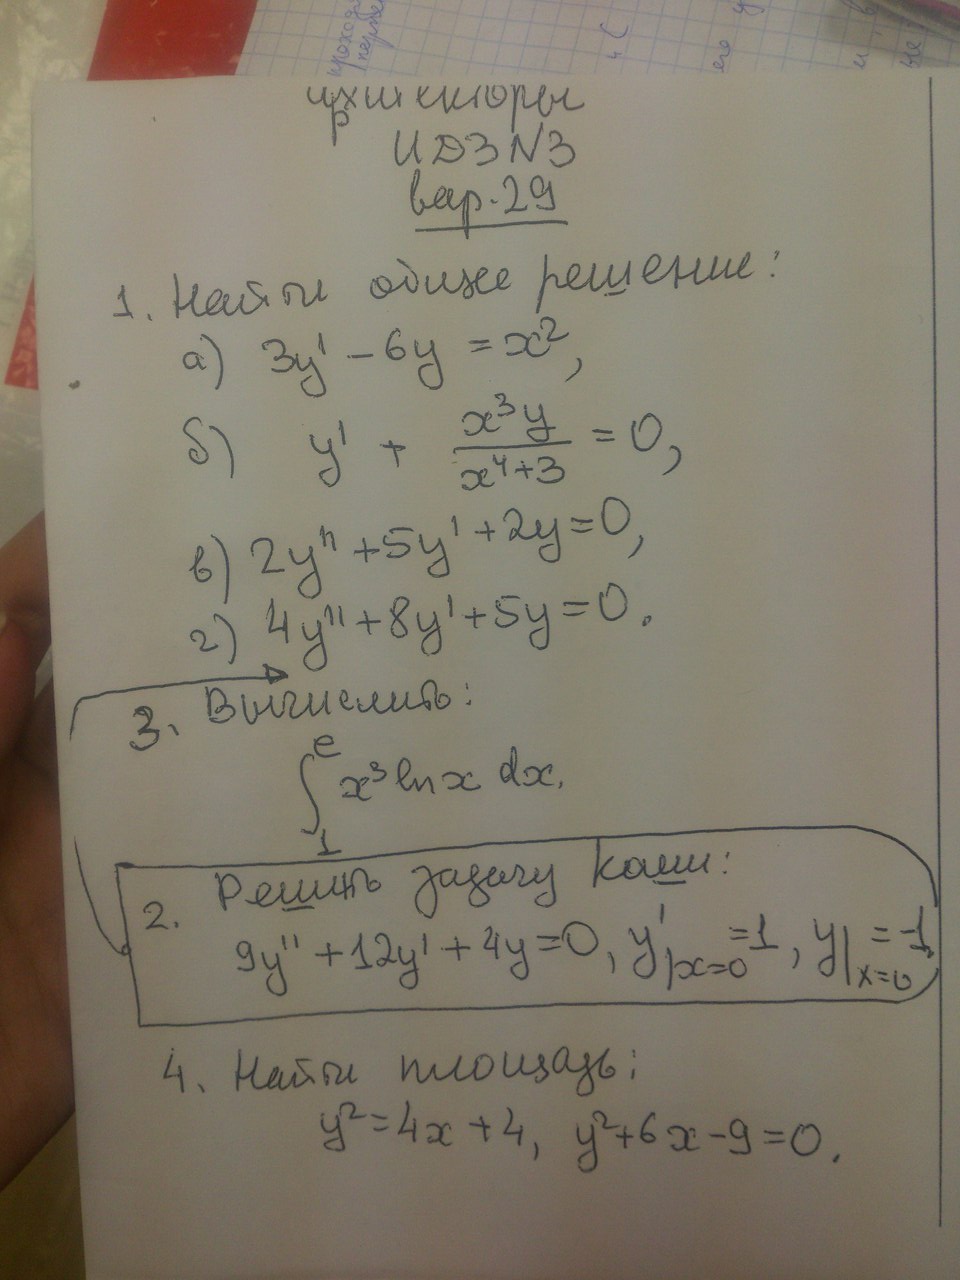 архитекторы
ИДЗ N3
вар. 29
1. Найти общее решение:
а) 3y' - 6y = x²,
б) y' + x³y/(x⁴+3) = 0,
в) 2y'' + 5y' + 2y = 0,
г) 4y'' + 8y' + 5y = 0.
3. Вычислить:
∫₁ᵉ x³ ln x dx.
2. Решить задачу Коши:
9y'' + 12y' + 4y = 0, y'|x=0 = 1, y|x=0 = -1.
4. Найти площадь:
y² = 4x + 4, y² + 6x - 9 = 0.